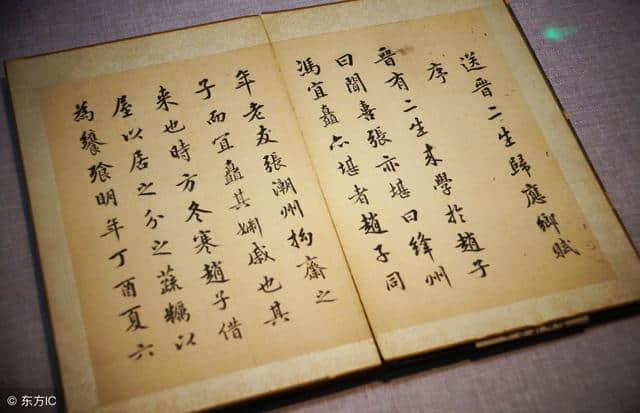 送晉二生歸應鄉賦
序
晉有二生來學於趙子
曰聞喜張亦堪曰絳州
馮宜蠡亦堪者趙子同
年老友張潮州拗齋之
子而宜蠡其姻戚也其
來也時方冬寒趙子借
屋以居之分之蔬糲以
為饔飧明年丁酉夏六
© 东方IC